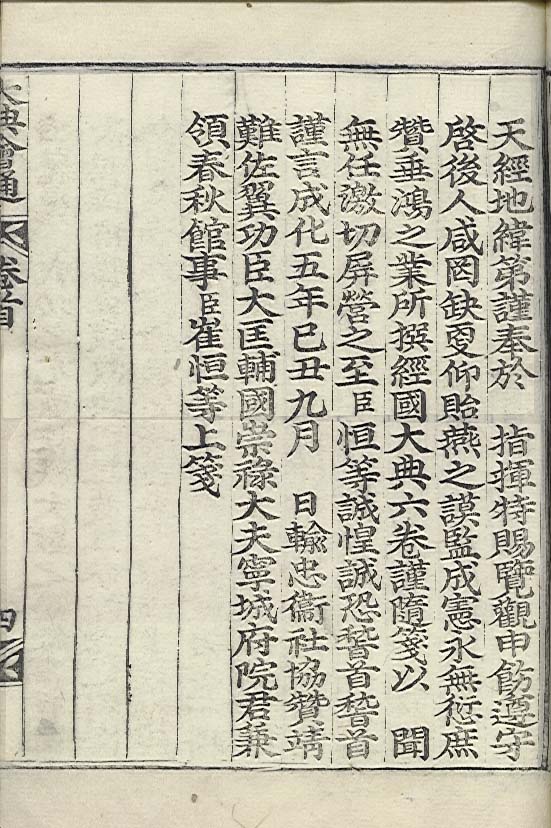 天經地緯第謹奉於 指揮特賜覽觀申飭遵守
啓後人咸罔缺爰仰貽燕之謨監成憲永無愆庶
贊垂鴻之業所撰經國大典六卷謹隨箋以 聞
無任激切屏營之至臣 恒等誠惶誠恐稽首稽首
謹言成化五年已丑九月 日輸忠衞社協贊靖
難佐翼功臣大匡輔國崇祿大夫寧城府院君兼
領春秋館事臣崔恒等上箋
大典會通 卷首 四